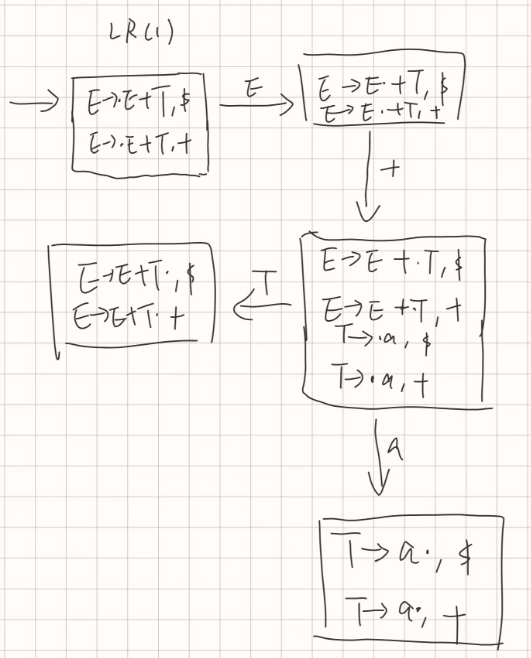 LR(1)
E→·E+T, $
E→·E+T, +
E
E→E·+T, $
E→E·+T, +
+
E→E+·T, $
E→E+·T, +
T→·a, $
T→·a, +
T
E→E+T·, $
E→E+T· +
a
T→a·, $
T→a·, +